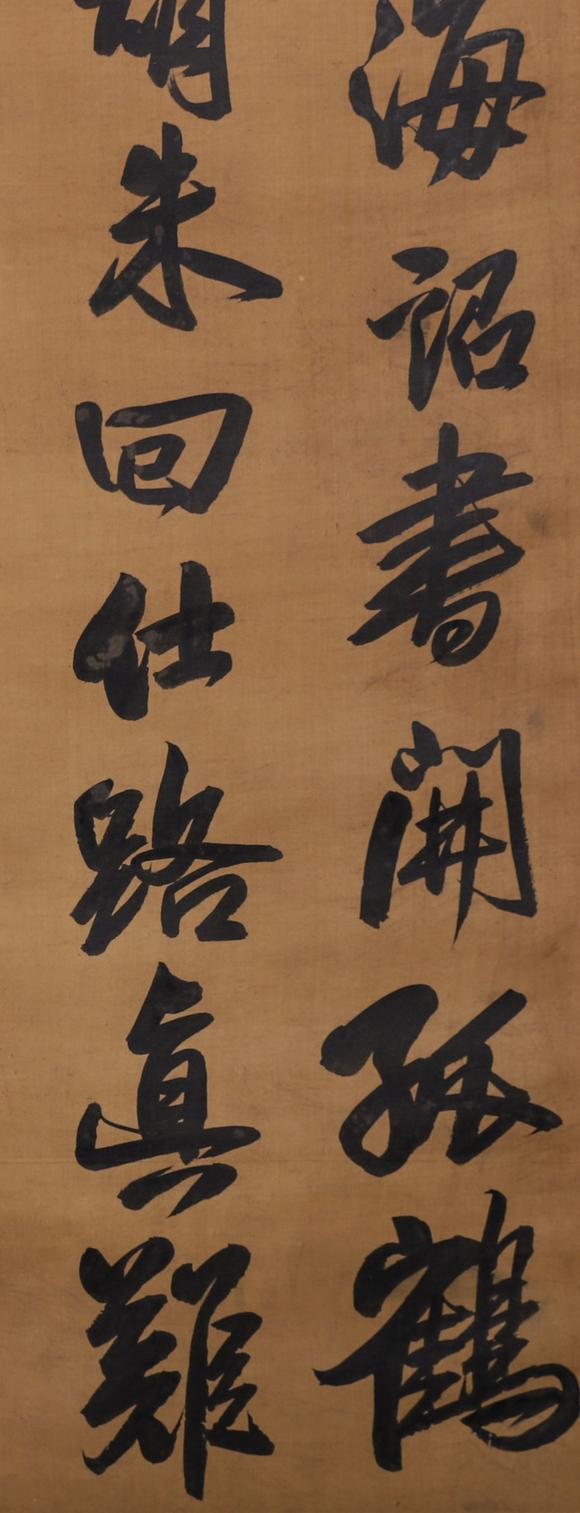 海詔書開孤鶴
朱回仕路真難